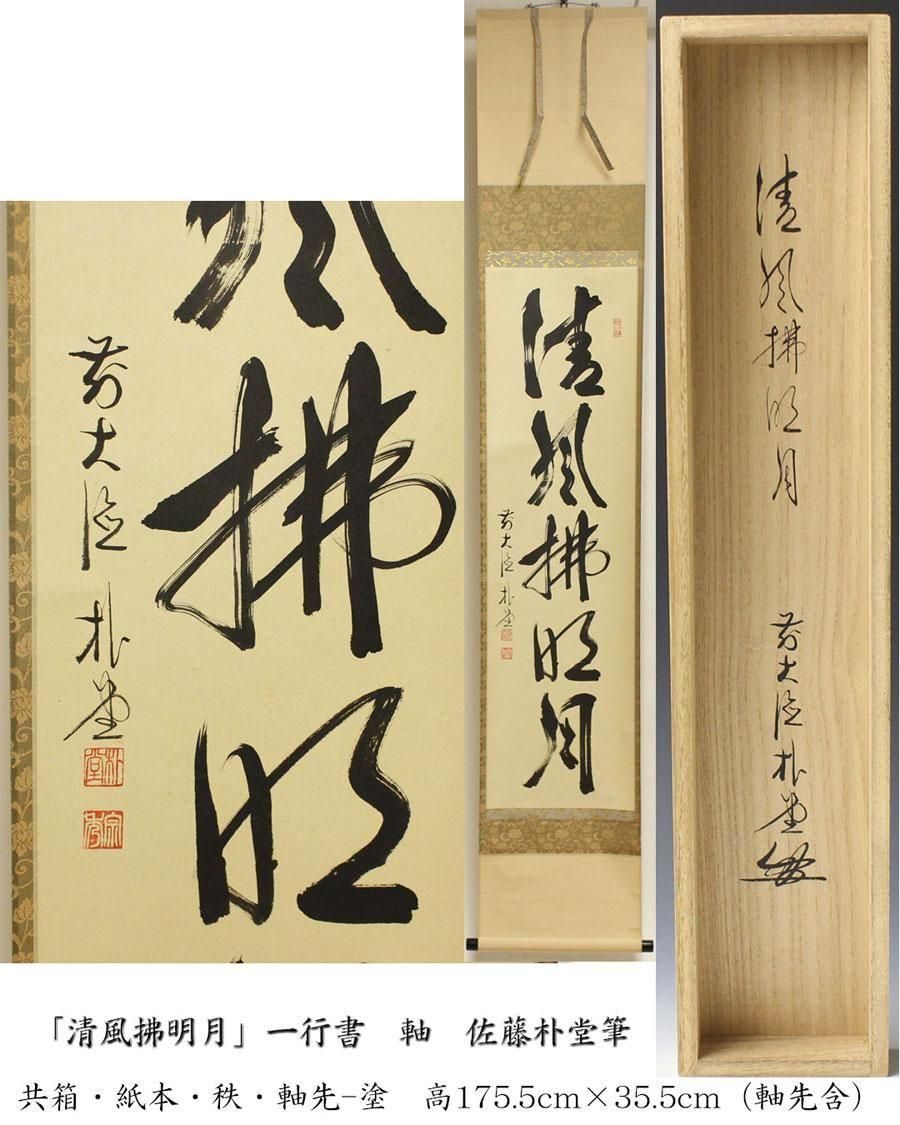 風拂明
前大德 朴堂
朴堂
宗秀
清風拂明月
前大德 朴堂
清風拂明月
前大德朴堂
「清風拂明月」一行書　軸　佐藤朴堂筆
共箱・紙本・秩・軸先-塗　高175.5cm×35.5cm（軸先含）